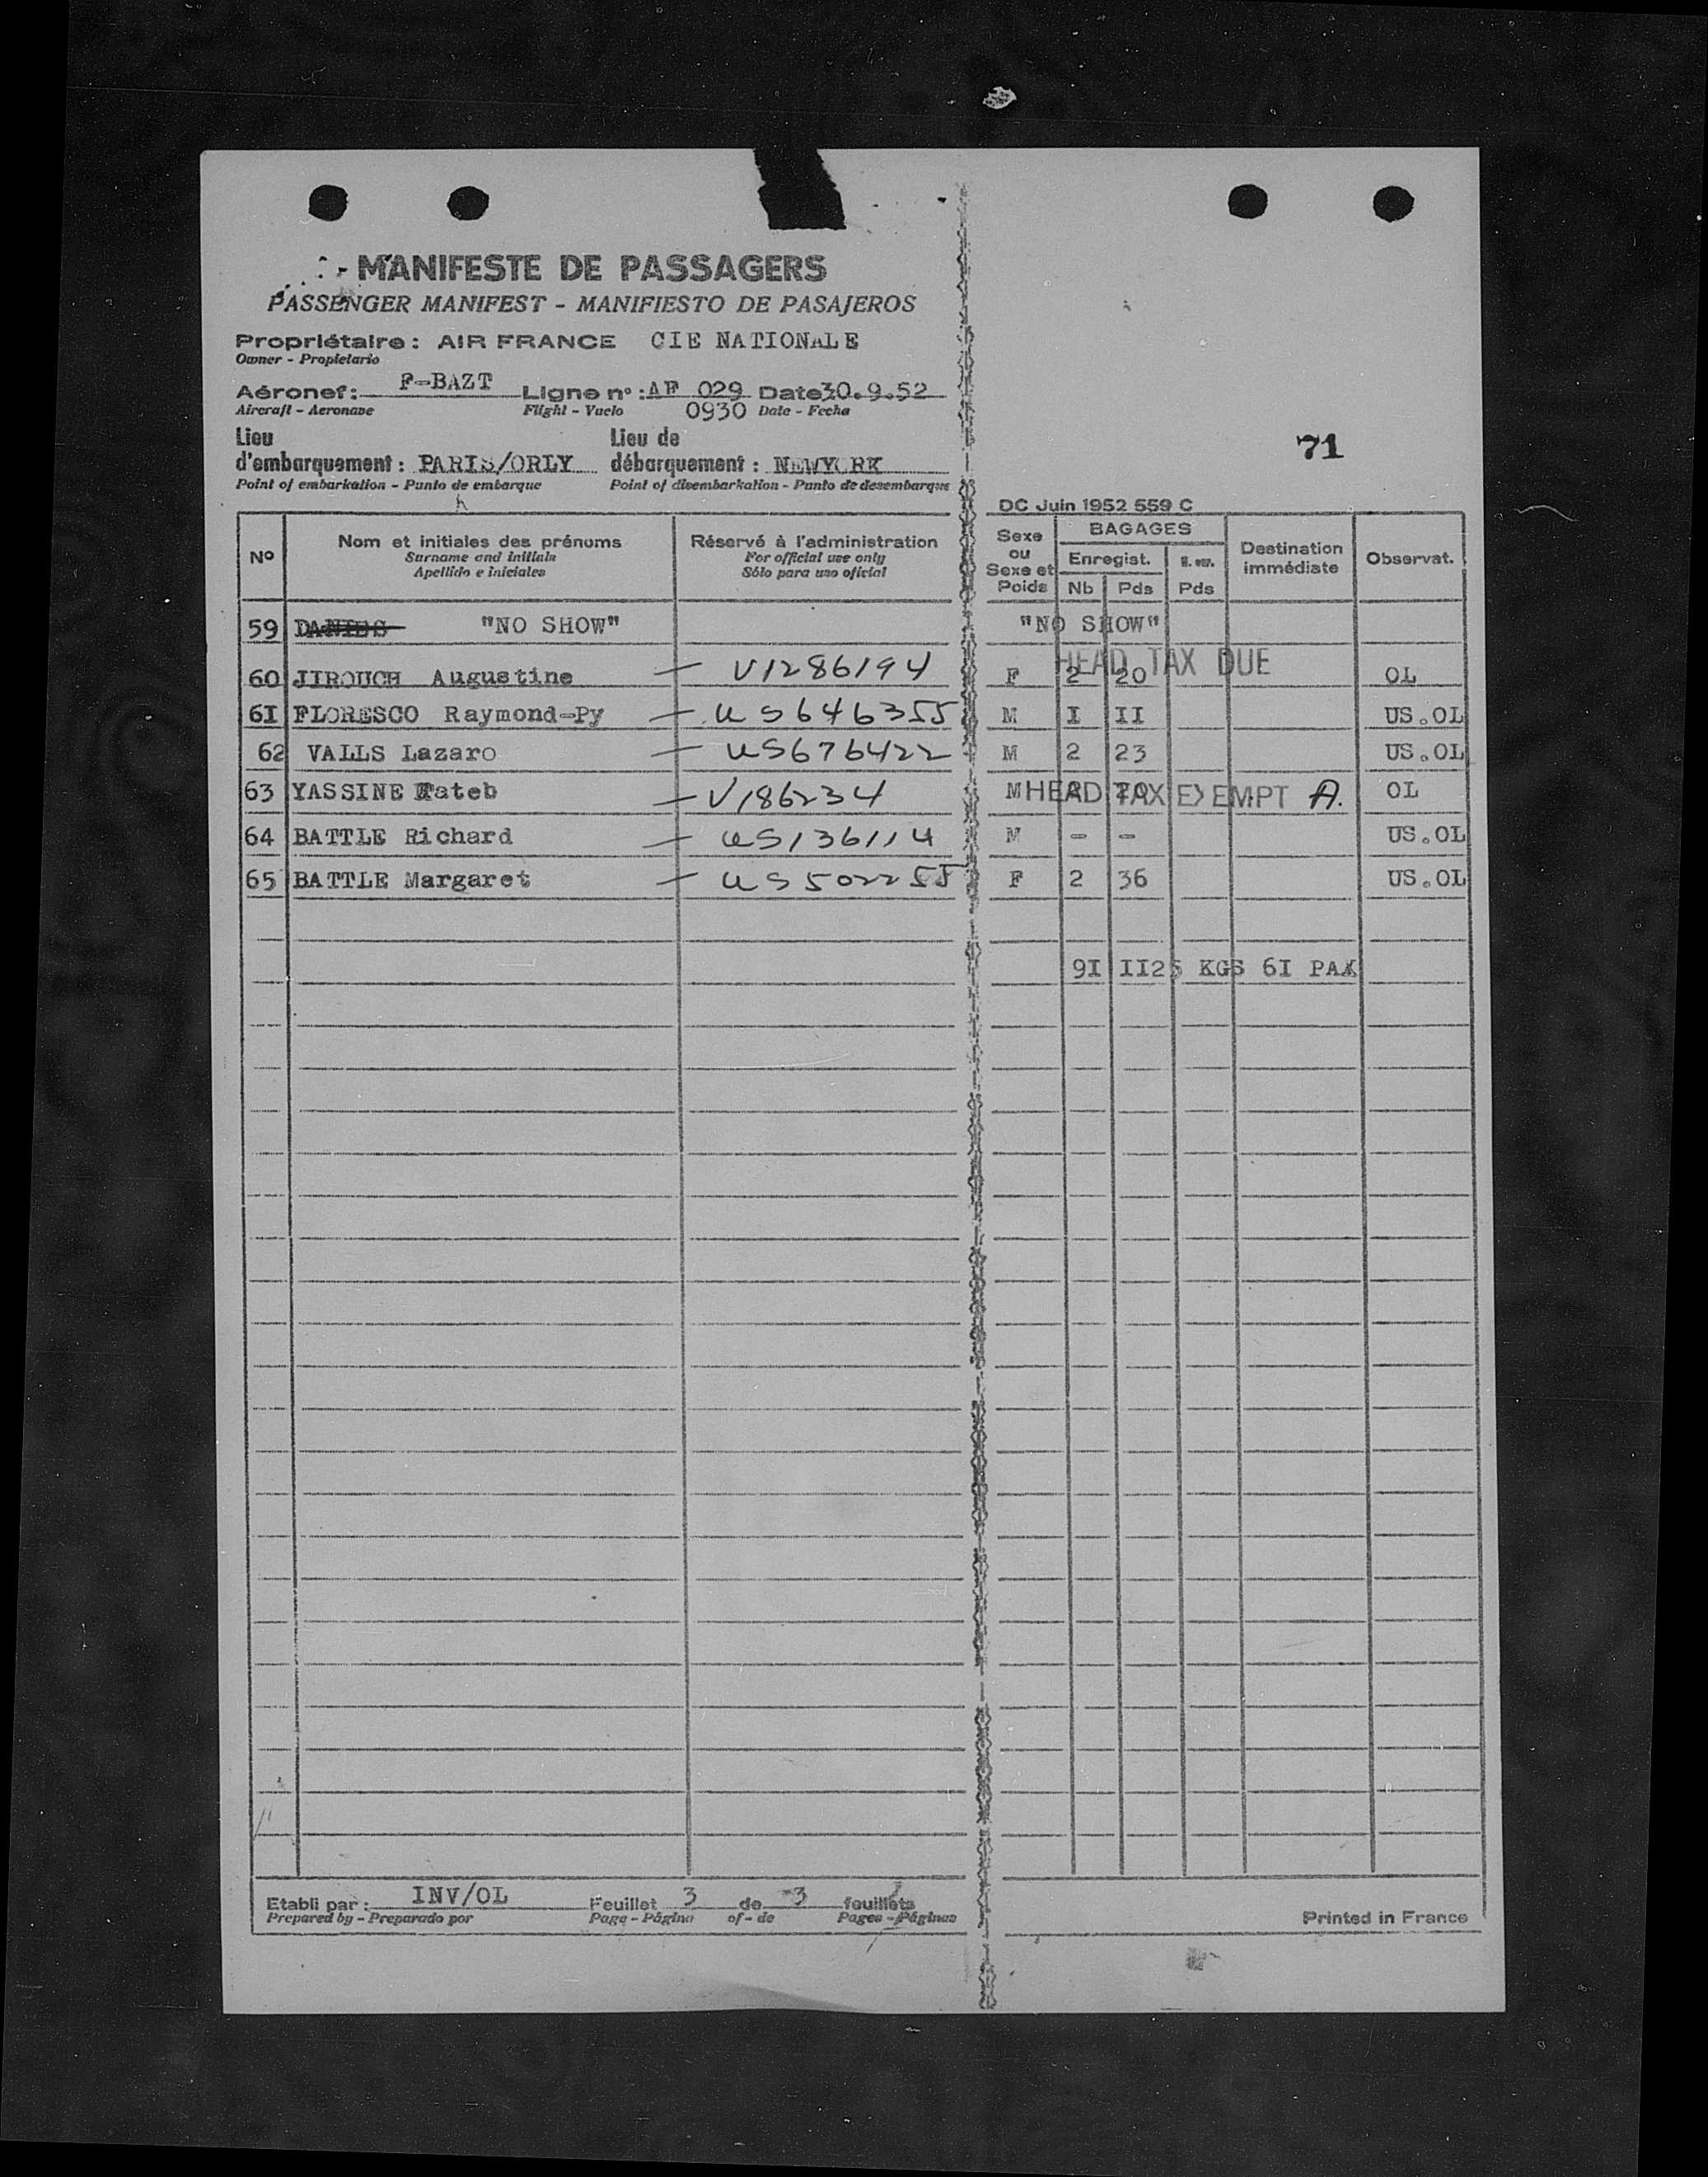 MANIFESTE DE PASSAGERS
PASSENGER MANIFEST - MANIFIESTO DE PASAJEROS
Propriétaire : AIR FRANCE CIE NATIONALE
Owner - Propietario
Aéronef : F-BAZT Ligne n° : AF 029 Date 30.9.52
Aircraft - Aeronave Flight - Vuelo 0930 Date - Fecha
Lieu d'embarquement : PARIS/ORLY Lieu de débarquement : NEWYORK
Point of embarkation - Punto de embarque Point of disembarkation - Punto de desembarque
71
DC Juin 1952 559 C
N° Nom et initiales des prénoms Réservé à l'administration Sexe ou Sexe et Poids BAGAGES Destination immédiate Observat.
Surname and initials For official use only Enregist.
Apellido e iniciales Sólo para uso oficial Nb Pds Pds
59 DANIES "NO SHOW" "NO SHOW"
HEAD TAX DUE
60 JIROUCH Augustine — V1286194 F 2 20 OL
6I FLORESCO Raymond-Py — US646355 M I II US.OL
62 VALLS Lazaro — US676422 M 2 23 US.OL
63 YASSINE Kateb — V186234 M 2 20 HEAD TAX EXEMPT A. OL
64 BATTLE Richard — US136114 M - - US.OL
65 BATTLE Margaret — US502255 F 2 36 US.OL
9I II25 KGS 6I PAX
Etabli par : INV/OL Feuillet 3 de 3 feuillets
Prepared by - Preparado por Page - Página of - de Pages - Páginas
Printed in France